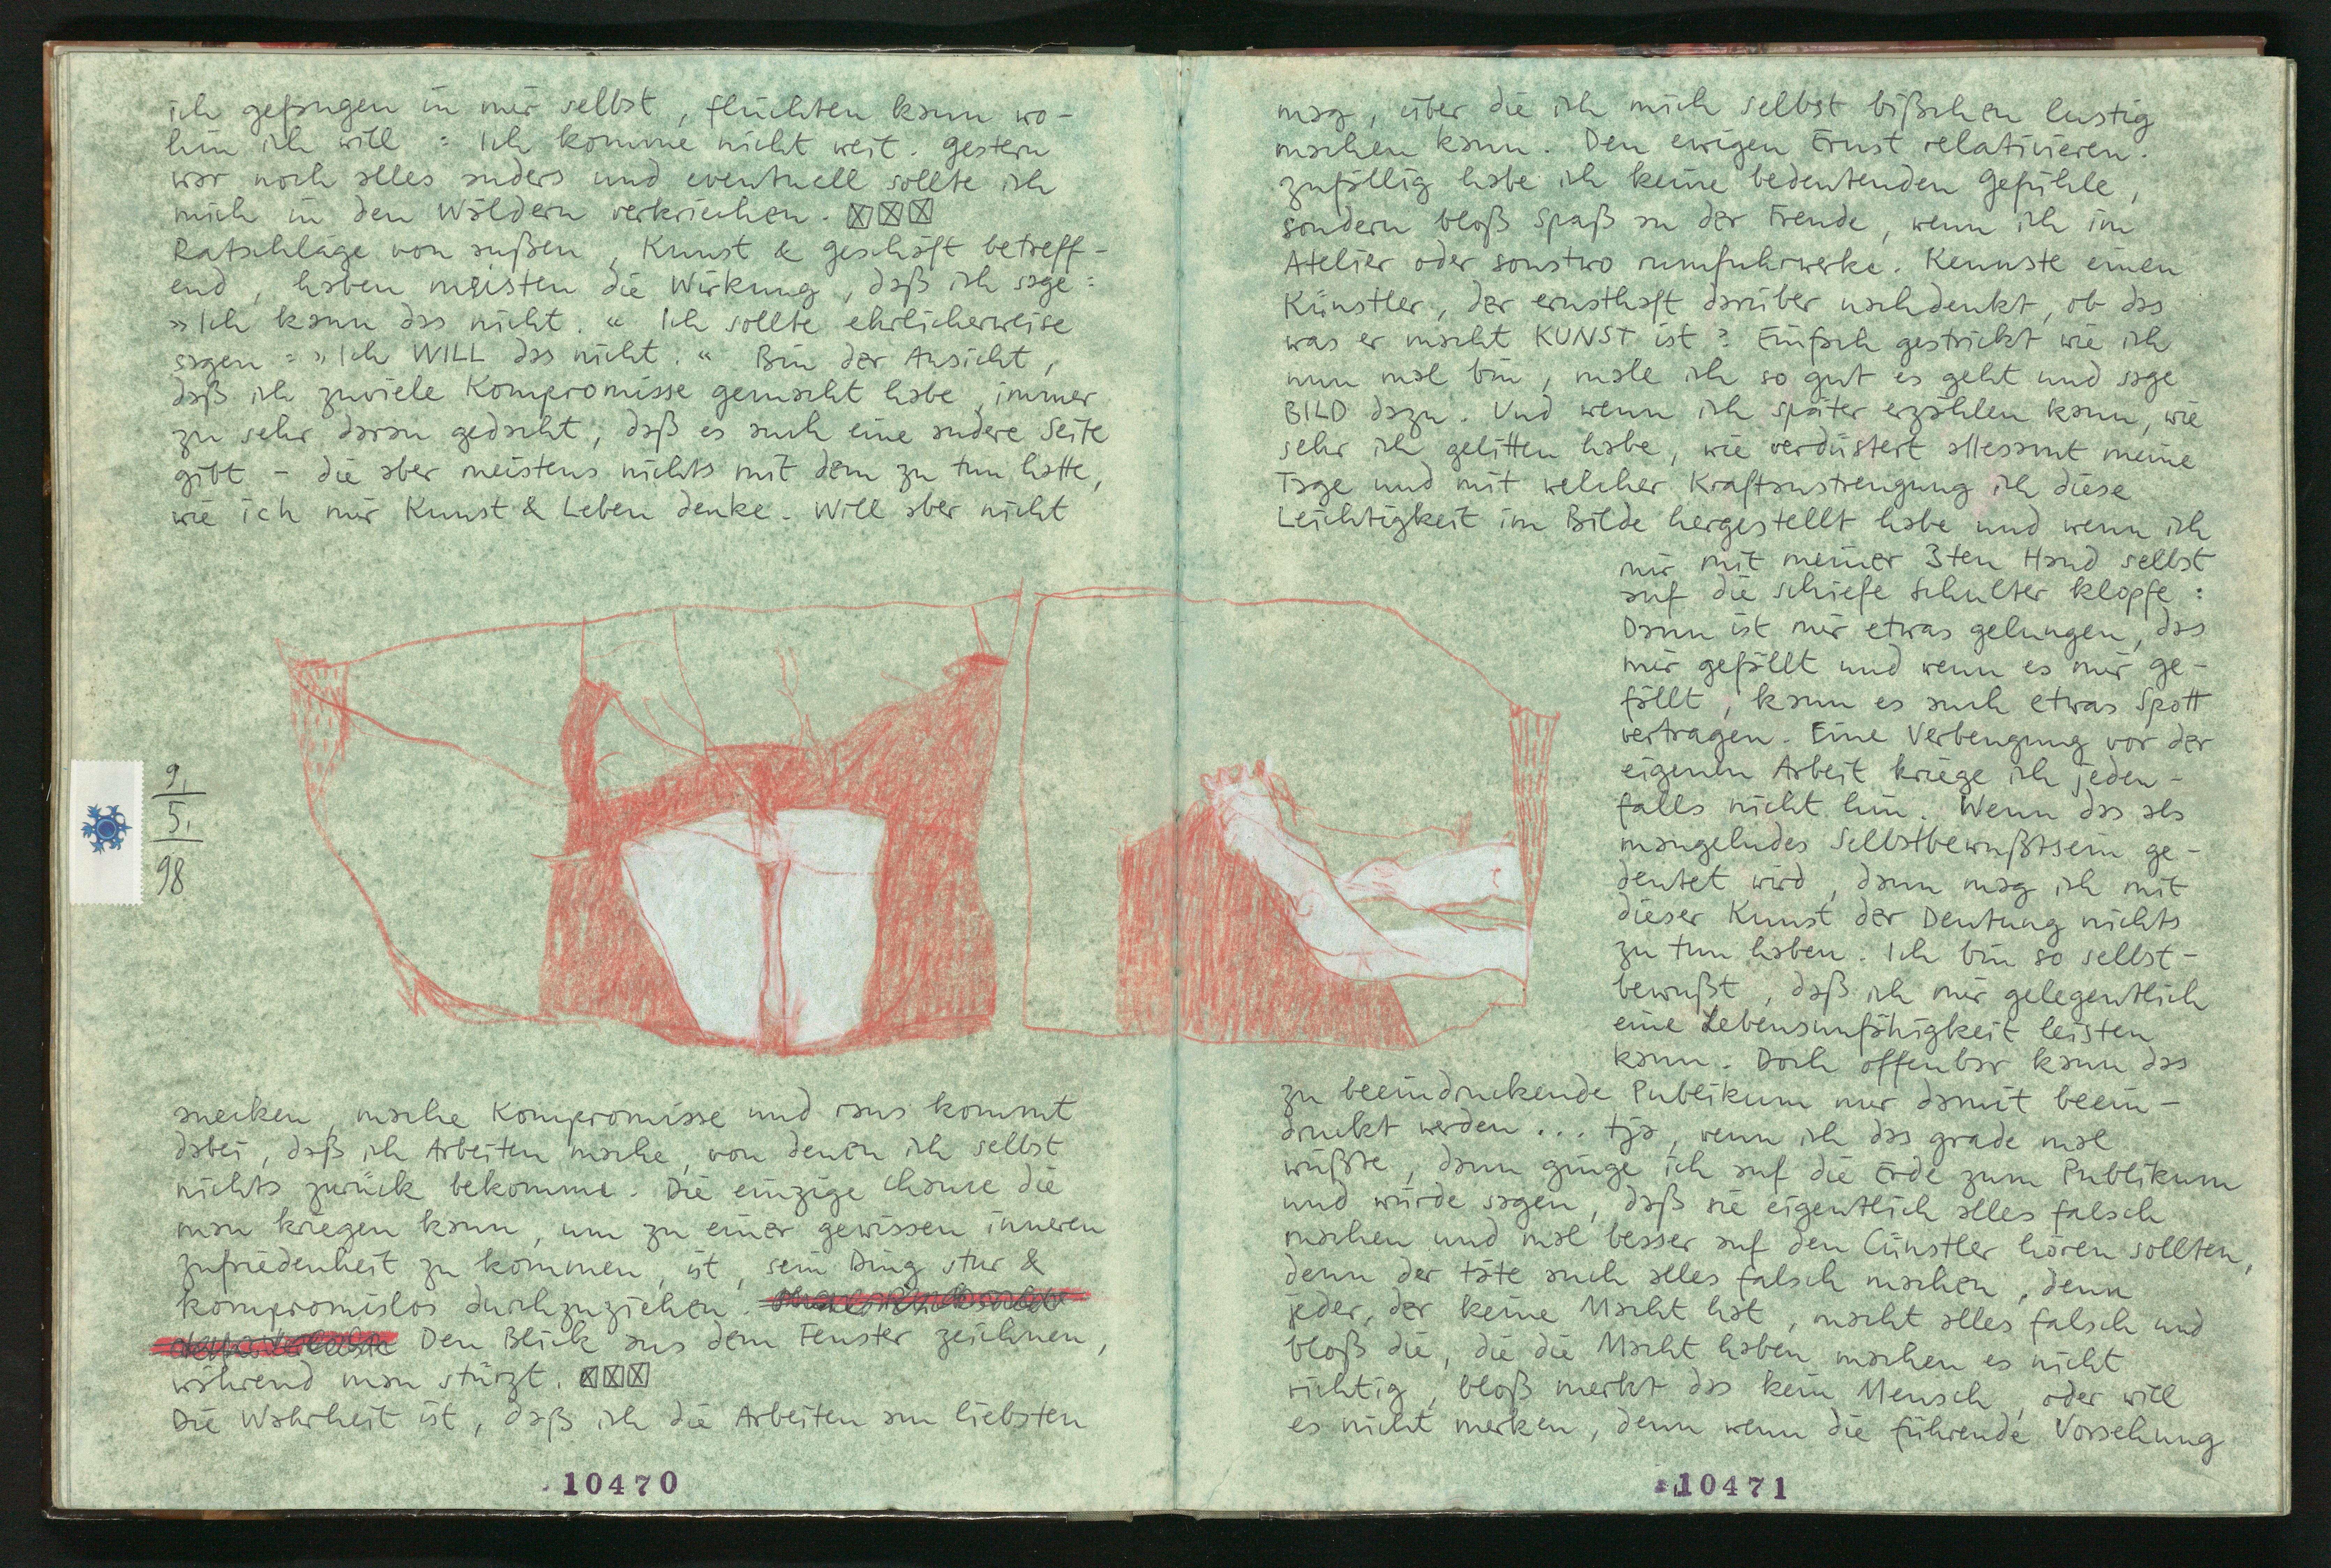 ich gefangen in mir selbst, flüchten kann wo-
hin ich will: Ich komme nicht weit. Gestern
war noch alles anders und eventuell sollte ich
mich in den Wäldern verkriechen. ☒☒☒
Ratschläge von außen, Kunst & Geschäft betreff-
end, haben meisten die Wirkung, daß ich sage:
»Ich kann das nicht.« Ich sollte ehrlicherweise
sagen: »Ich WILL das nicht.« Bin der Ansicht,
daß ich zuviele Kompromisse gemacht habe, immer
zu sehr daran gedacht, daß es auch eine andere Seite
gibt – die aber meistens nichts mit dem zu tun hatte,
wie ich mir Kunst & Leben denke. Will aber nicht
9.
5.
98
anecken, mache Kompromisse und raus kommt
dabei, daß ich Arbeiten mache, von denen ich selbst
nichts zurück bekomme. Die einzige Chance die
man kriegen kann, um zu einer gewissen inneren
Zufriedenheit zu kommen, ist, sein Ding stur &
kompromislos durchzuziehen.
Den Blick aus dem Fenster zeichnen,
während man stürzt. ☒☒☒
Die Wahrheit ist, daß ich die Arbeiten am liebsten
10470
mag, über die ich mich selbst bißchen lustig
machen kann. Den ewigen Ernst relativieren.
Zufällig habe ich keine bedeutenden Gefühle,
sondern bloß Spaß an der Freude, wenn ich im
Atelier oder sonstwo rumfuhrwerke. Kennste einen
Künstler, der ernsthaft darüber nachdenkt, ob das
was er macht KUNST ist? Einfach gestrickt wie ich
nun mal bin, male ich so gut es geht und sage
BILD dazu. Und wenn ich später erzählen kann, wie
sehr ich gelitten habe, wie verdüstert allesamt meine
Tage und mit welcher Kraftanstrengung ich diese
Leichtigkeit im Bilde hergestellt habe und wenn ich
mir mit meiner 3ten Hand selbst
auf die schiefe Schulter klopfe:
Dann ist mir etwas gelungen, das
mir gefällt und wenn es mir ge-
fällt, kann es auch etwas Spott
vertragen. Eine Verbeugung vor der
eigenen Arbeit kriege ich jeden-
falls nicht hin. Wenn das als
mangelndes Selbstbewußtsein ge-
deutet wird, dann mag ich mit
dieser Kunst der Deutung nichts
zu tun haben. Ich bin so selbst-
bewußt, daß ich mir gelegentlich
eine Lebensunfähigkeit leisten
kann. Doch offenbar kann das
zu beeindruckende Publikum nur damit beein-
druckt werden... tja, wenn ich das grade mal
wüßte, dann ginge ich auf die Erde zum Publikum
und würde sagen, daß sie eigentlich alles falsch
machen und mal besser auf den Cünstler hören sollten,
denn der täte auch alles falsch machen, denn
jeder, der keine Macht hat, macht alles falsch und
bloß die, die die Macht haben machen es nicht
richtig, bloß merkt das kein Mensch, oder will
es nicht merken, denn wenn die führende Vorsehung
10471